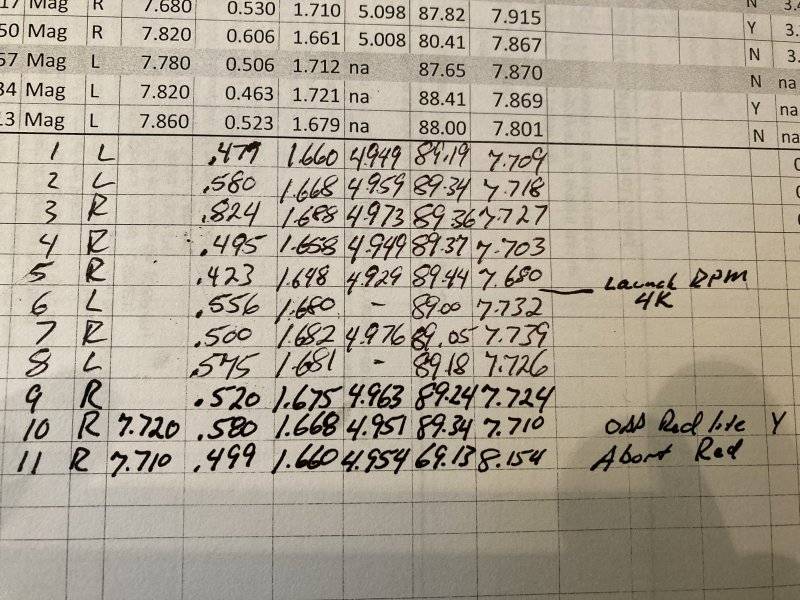 17 Mag R 7.680 0.530 1.710 5.098 87.82 7.915 N 3.4
50 Mag R 7.820 0.606 1.661 5.008 80.41 7.867 Y 3.
57 Mag L 7.780 0.506 1.712 na 87.65 7.870 N 3.
34 Mag L 7.820 0.463 1.721 na 88.41 7.869 N na
13 Mag L 7.860 0.523 1.679 na 88.00 7.801 Y na
N na
1 L .479 1.660 4.949 89.19 7.709
2 L .580 1.668 4.959 89.34 7.718
3 R .824 1.688 4.973 89.36 7.727
4 R .495 1.658 4.949 89.37 7.703
5 R .423 1.648 4.929 89.44 7.680 Launch RPM
6 L .556 1.680 - 89.00 7.732 4K
7 R .500 1.682 4.976 89.05 7.739
8 L .575 1.681 - 89.18 7.726
9 R .520 1.675 4.963 89.24 7.724
10 R 7.720 .580 1.668 4.951 89.34 7.710 Red lite Y
11 R 7.710 .499 1.660 4.954 69.13 8.154 Abort Red